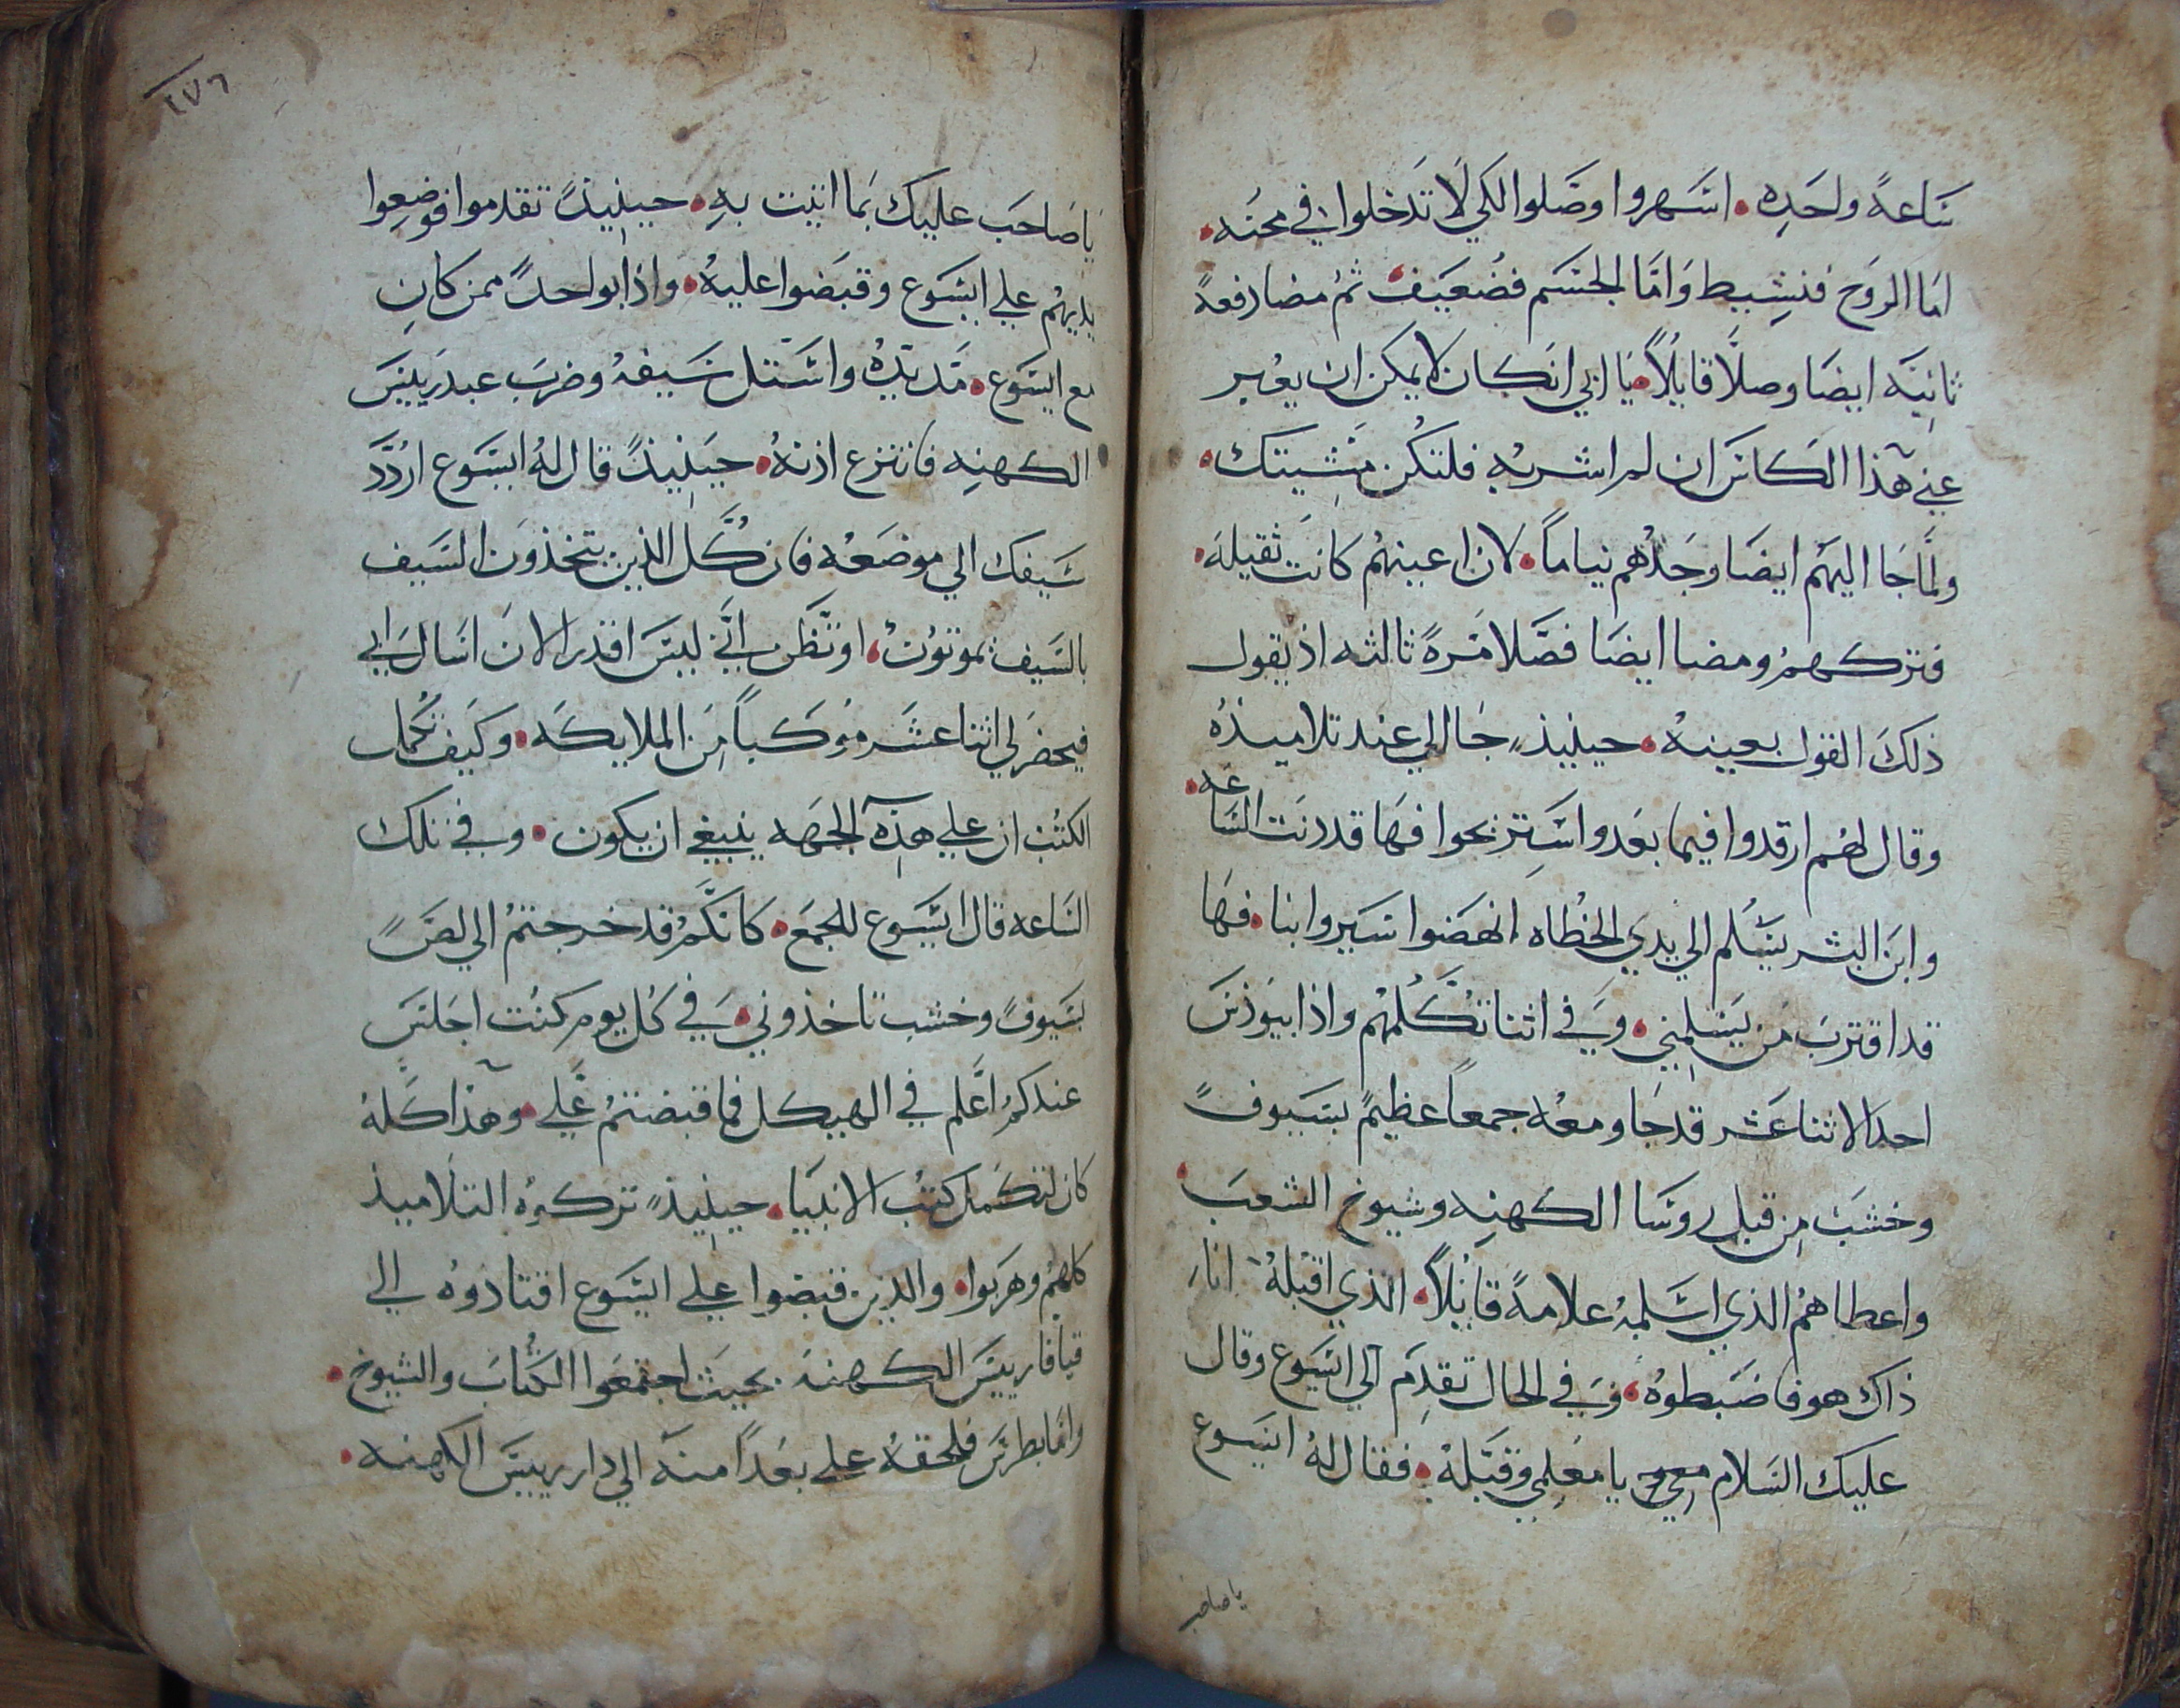 ساعةً واحده اسهروا وصَلوا لكي لا تدخلوا في محنه
اما الروح فنشيط واما الجسم فضعيف ثم مضا دفعةً
ثانيَه ايضا وصلا قايلاً يا ابي ان كان لا يمكن ان يعبر
عني هذا الكاس ان لم اشربه فلتكن مشيتك
ولما جا اليهم ايضا وجدهم نياماً لان اعينهم كانت ثقيله
فتركهم ومضا ايضا فصلا مرةً ثالثه اذ يقول
ذلك القول بعينه حينيذٍ جا الي عند تلاميذه
وقال لهم ارقدوا فيما بعد واستريحوا فها قد دنت الساعه
وابن البشر يسلم الي يدي الخطاه انهضوا سيروا بنا فها
قد اقترب من يسلمني وفي اثنا تكلمهم واذا بيوذس
احد الاثنا عشر قد جا ومعه جمعاً عظيمً بسيوفً
وخشب من قبل روسا الكهنه وشيوخ الشعب
واعطاهم الذي اسلمه علامةً قايلاً الذي اقبله انا
ذاك هو فاضبطوه وفي الحال تقدم الي ايسوع وقال
عليك السلام يا معلمي وقبله فقال له ايسوع
يا صاحب
٤٧٦
يا صاحب عليك بما اتيت به حينيذً تقدموا فوضعوا
يديهم علي ايسوع وقبضوا عليه واذا بواحدً ممن كان
مع ايسوع مد يده واستل سيفه وضرب عبد رييس
الكهنه فانتزع اذنه حينيذً قال له ايسوع اردد
سيفك الي موضعه فان كل الذين يتخذون السيف
بالسيف يموتون او تظن اني ليس اقدر الان اسال ابي
فيحضر لي اثنا عشر موكباً من الملايكه وكيف تكمل
الكتب ان علي هذه الجهه ينبغي ان يكون وفي تلك
الساعه قال ايسوع للجمع كانكم قد خرجتم الي لصً
بسيوفً وخشب تاخذوني في كل يوم كنت اجلس
عندكم اعلم في الهيكل فما قبضتم علي وهذا كله
كان لتكمل كتب الانبيا حينيذٍ تركوه التلاميذ
كلهم وهربوا والذين قبضوا علي ايسوع اقتادوه الي
قيافا رييس الكهنه بحيث اجتمعوا الكتاب والشيوخ
واما بطرس فلحقه علي بعداً منه الي دار رييس الكهنه